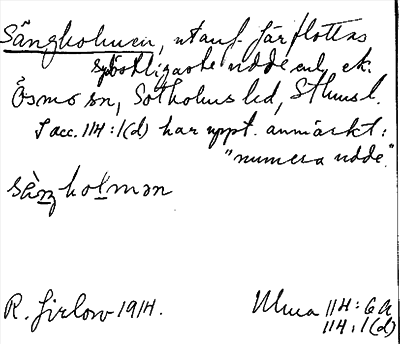 Sängholmen, utanf. Järflottas
sydostligaste udde enl. ek.
Ösmo sn, Sotholms hd, Sthms l.
I acc. 114:1(d) har uppt. anmärkt:
"numera udde."
sàŋholmən
R. Jirlow 1914. Ulma 114:6 a
114:1(d)